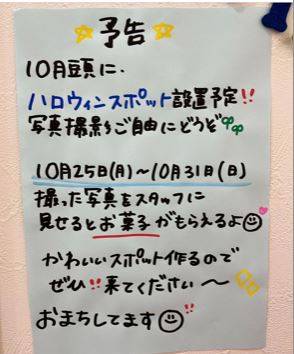 予告
10月頭に、
ハロウィンスポット設置予定!!
写真撮影もご自由にどうぞ
10月25日(月)〜10月31日(日)
撮った写真をスタッフに
見せるとお菓子がもらえるよ
かわいいスポット作るので
ぜひ!!来てください〜
おまちしてます!!